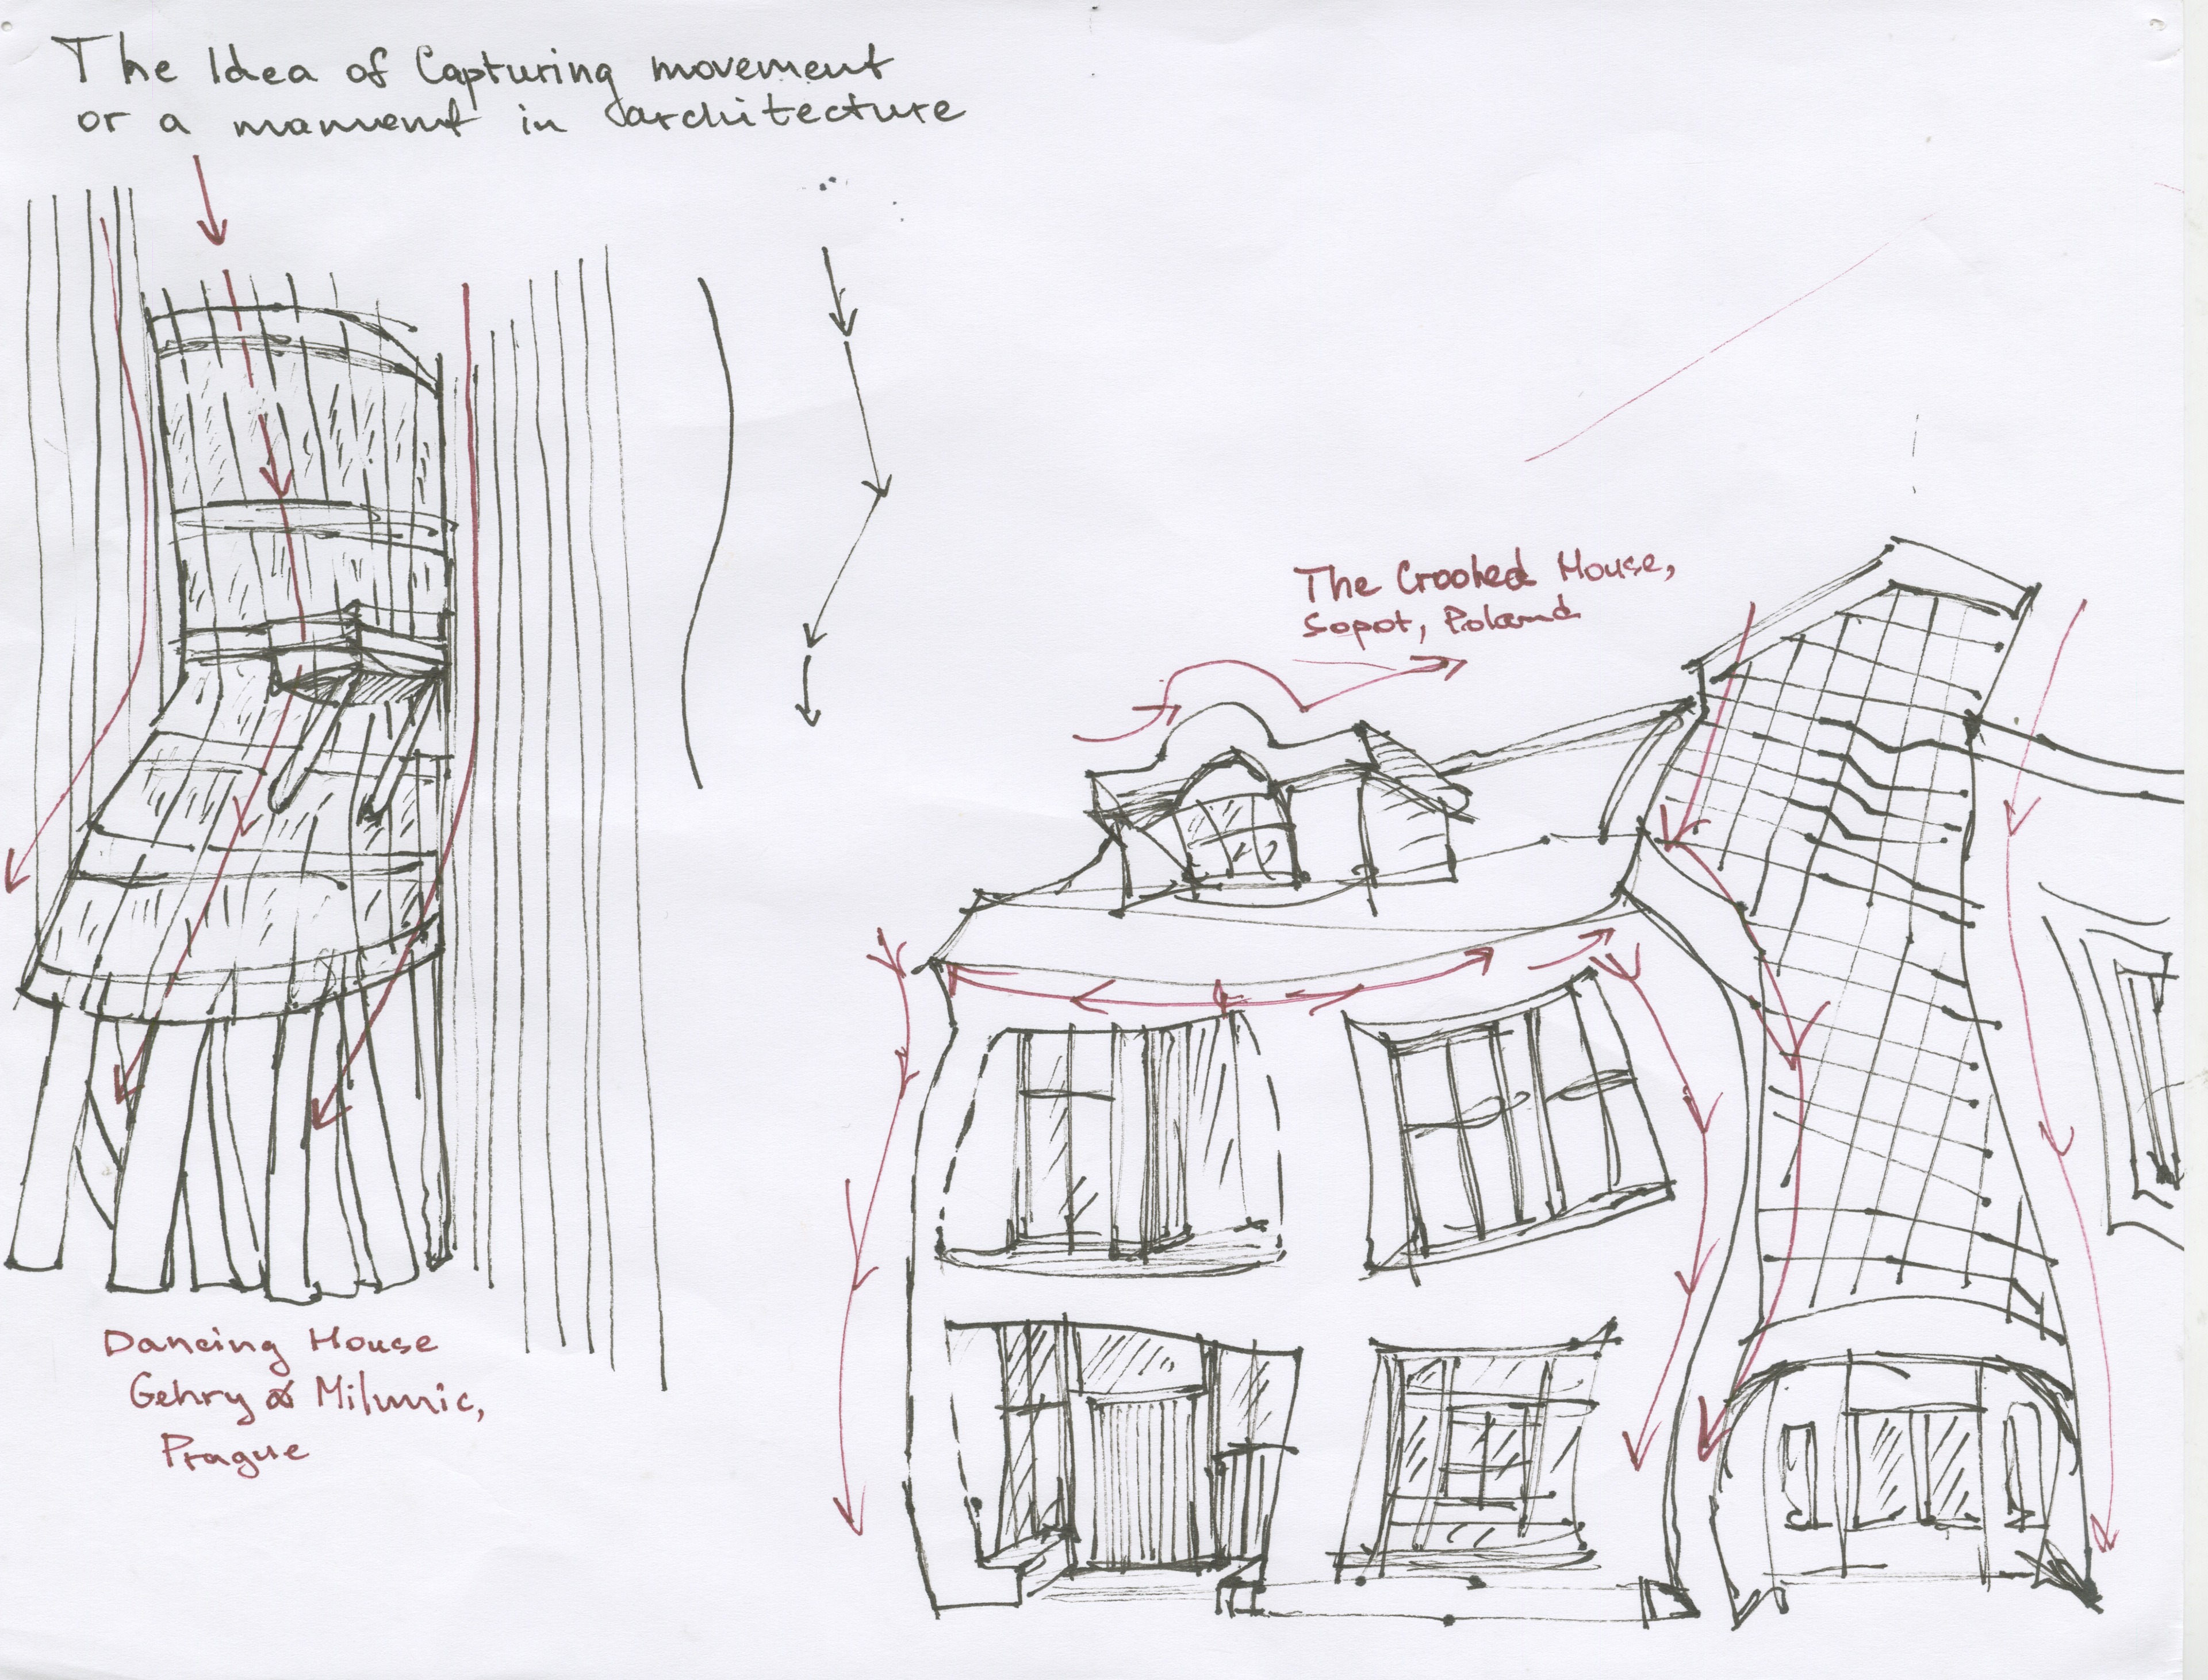 The Idea of Capturing movement
or a mament in architecture
The Crooked House,
Sopot, Poland
Dancing House
Gehry & Milunic,
Prague